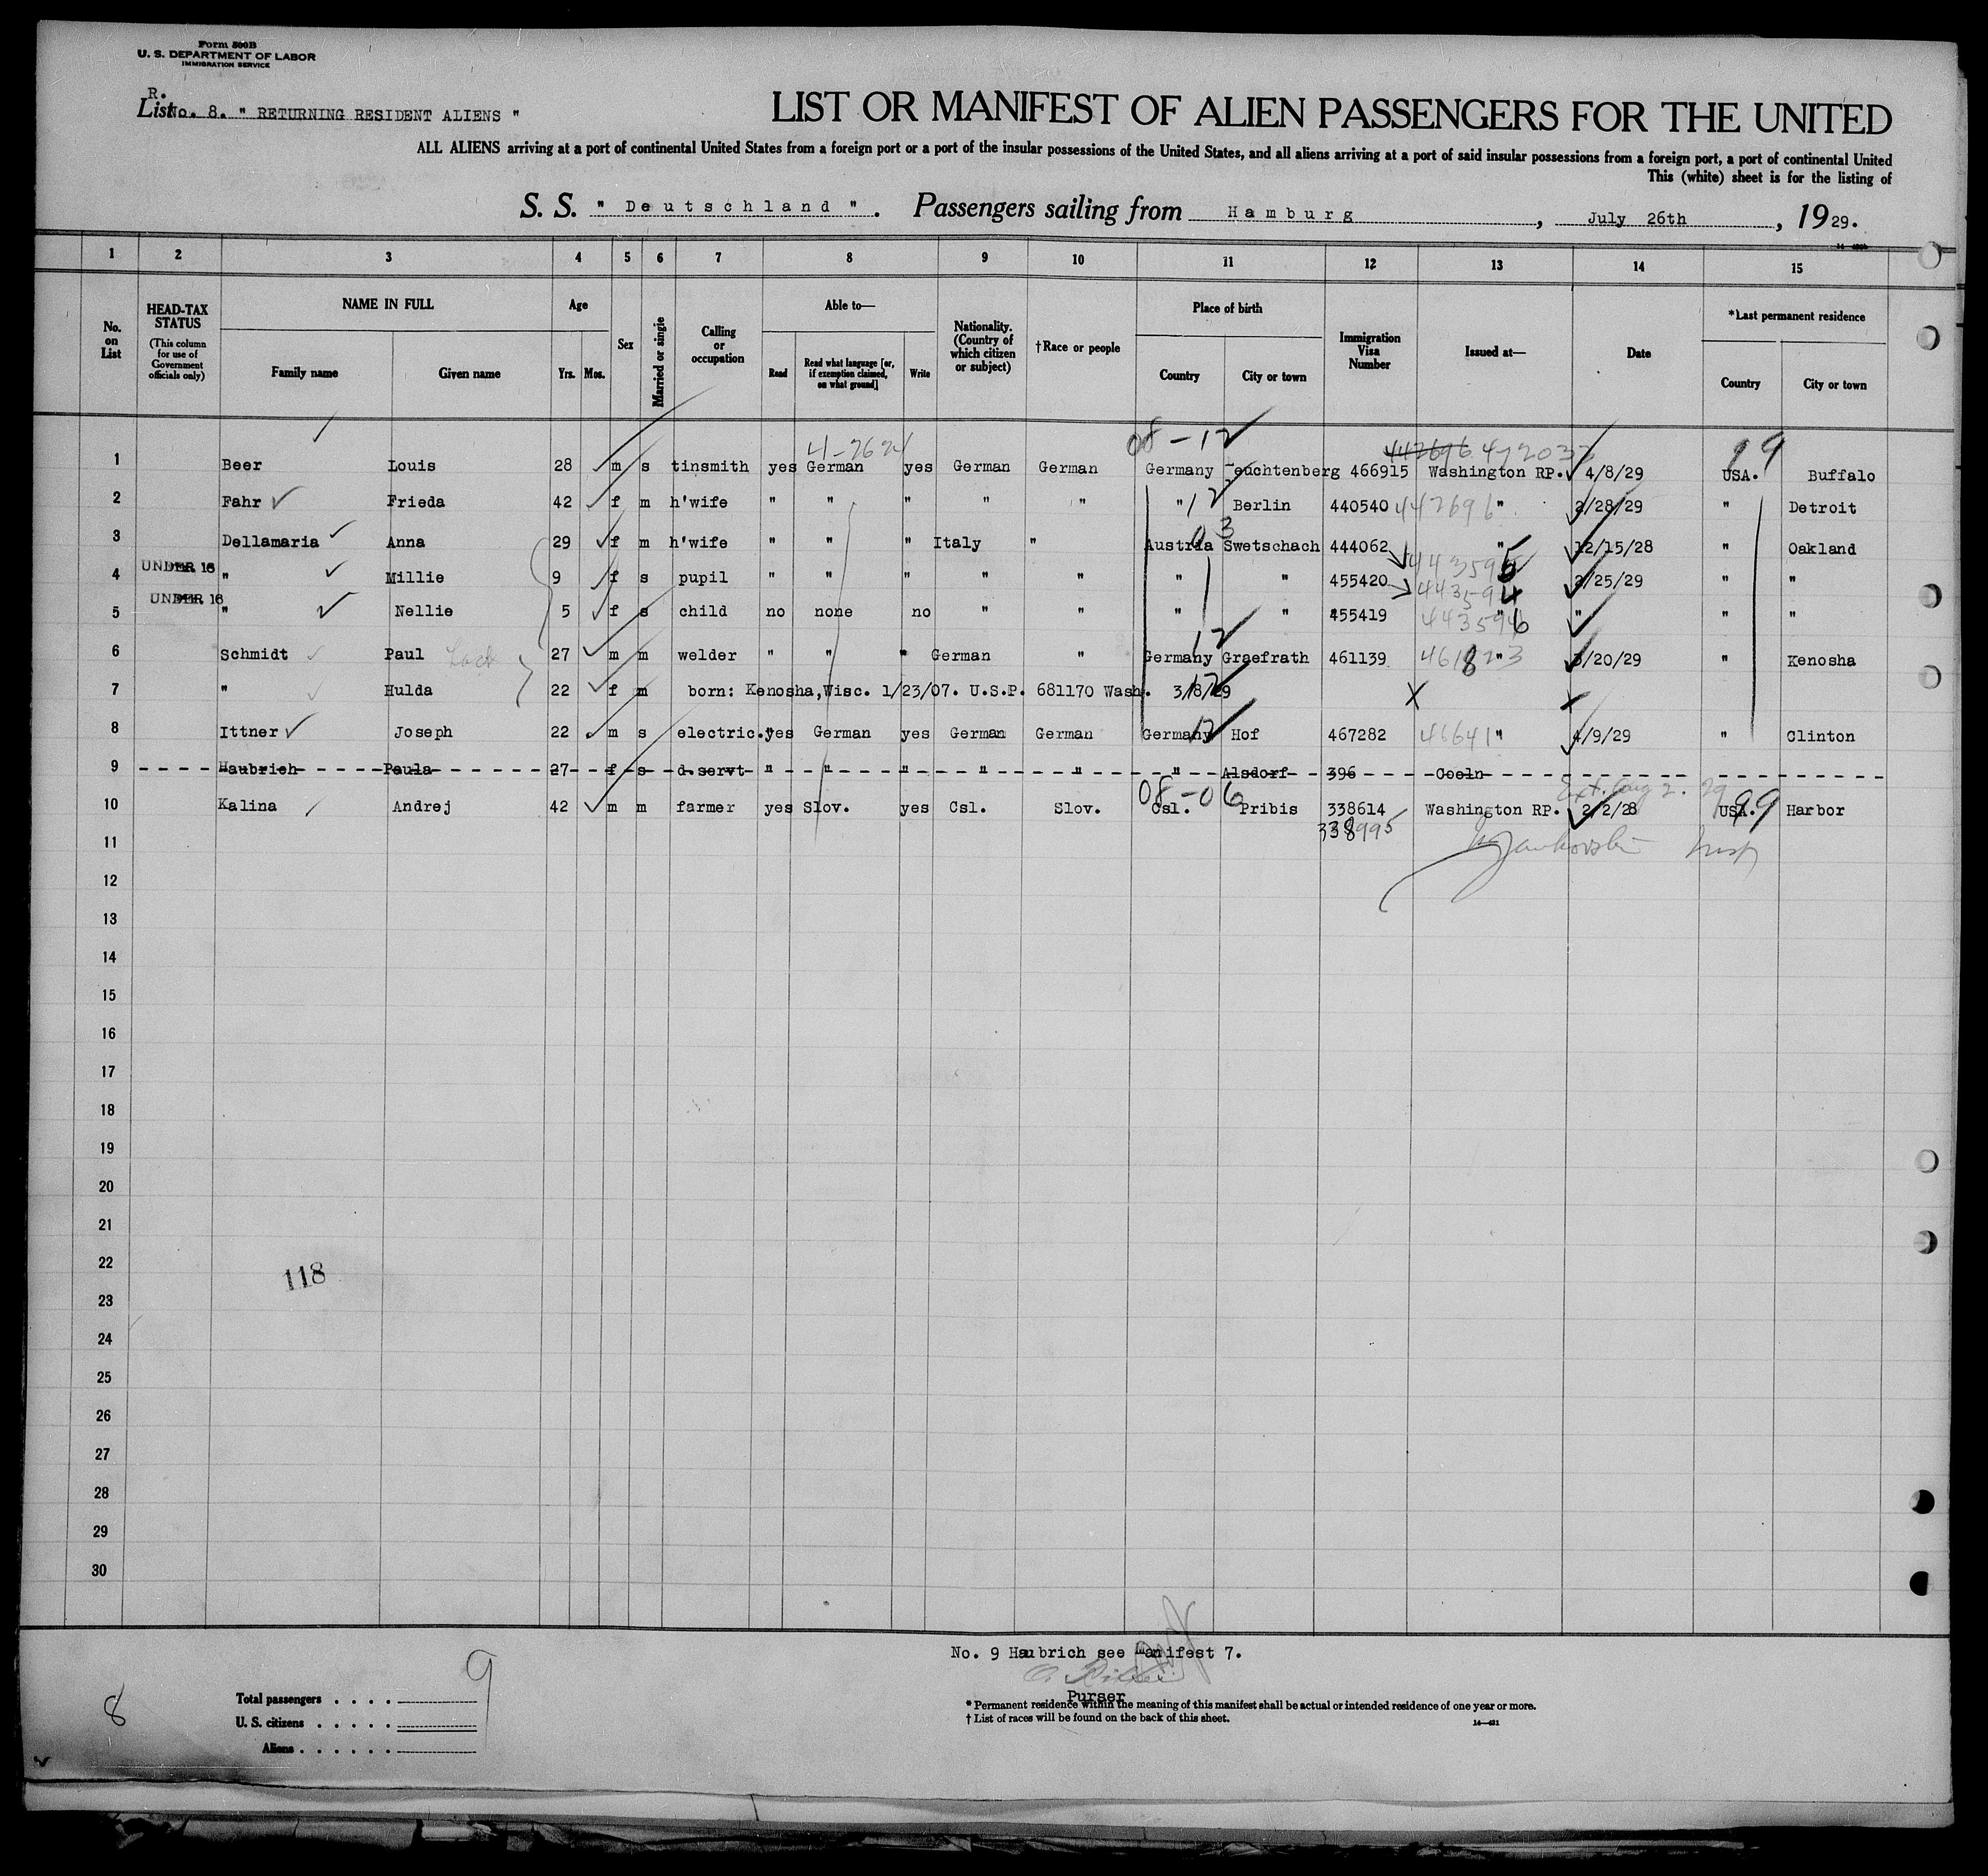 Form 500B
U. S. DEPARTMENT OF LABOR
IMMIGRATION SERVICE
R.
List No. 8. " RETURNING RESIDENT ALIENS "
LIST OR MANIFEST OF ALIEN PASSENGERS FOR THE UNITED
ALL ALIENS arriving at a port of continental United States from a foreign port or a port of the insular possessions of the United States, and all aliens arriving at a port of said insular possessions from a foreign port, a port of continental United
This (white) sheet is for the listing of
S. S. " Deutschland ". Passengers sailing from Hamburg, July 26th, 1929.
1 2 3 4 5 6 7 8 9 10 11 12 13 14 15
No. on List
HEAD-TAX STATUS (This column for use of Government officials only)
NAME IN FULL Family name Given name
Age Yrs. Mos.
Sex
Married or single
Calling or occupation
Able to— Read Read what language [or, if exemption claimed, on what ground] Write
Nationality. (Country of which citizen or subject)
†Race or people
Place of birth Country City or town
Immigration Visa Number
Issued at—
Date
*Last permanent residence Country City or town
4-2624 08-12 442696 99
1 Beer Louis 28 m s tinsmith yes German yes German German Germany Leuchtenberg 466915 Washington RP. 4/8/29 USA. Buffalo
2 Fahr Frieda 42 f m h'wife " " " " " " 12 Berlin 440540 442696 " 2/28/29 " Detroit
03
3 Dellamaria Anna 29 f m h'wife " " " Italy " Austria Swetschach 444062 " 12/15/28 " Oakland
443595
UNDER 16
4 " Millie 9 f s pupil " " " " " " " 455420 " 2/25/29 " "
443594
UNDER 16
5 " Nellie 5 f s child no none no " " " " 455419 " " " "
443596
12
6 Schmidt Paul 27 m m welder " " " German " Germany Graefrath 461139 461823 " 3/20/29 " Kenosha
7 " Hulda 22 f m born: Kenosha,Wisc. 1/23/07. U.S.P. 681170 Wash. 3/8/29 X X
8 Ittner Joseph 22 m s electric. yes German yes German German Germany 12 Hof 467282 46641 " 4/9/29 " Clinton
9 Haubrich Paula 27 f s d.servt " " " " " " Alsdorf 396 Coeln
08-06 Ext. Aug 2. 29 99
10 Kalina Andrej 42 m m farmer yes Slov. yes Csl. Slov. Csl. Pribis 338614 Washington RP. 2/2/28 USA. Harbor
338995
11
12
13
14
15
16
17
18
19
20
21
22
118
23
24
25
26
27
28
29
30
No. 9 Haubrich see Manifest 7.
Purser
8
9
Total passengers . . . .
U. S. citizens . . . . .
Aliens . . . . . .
* Permanent residence within the meaning of this manifest shall be actual or intended residence of one year or more.
† List of races will be found on the back of this sheet.
14—421